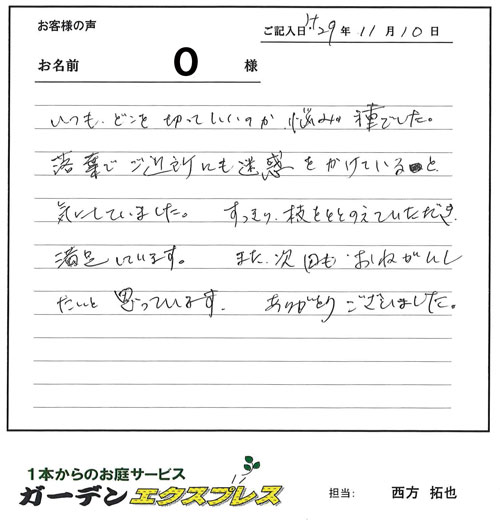 お客様の声
ご記入日 H29年 11月 10日
お名前 O 様
いつも、どこを切っていいのか、悩みの種でした。
落葉でご近所にも迷惑をかけていると
気にしていました。 すっきり、枝をととのえていただき、
満足しています。 また、次回も、おねがいし
たいと思っています。 ありがとうございました。
1本からのお庭サービス
ガーデンエクスプレス
担当: 西方 拓也